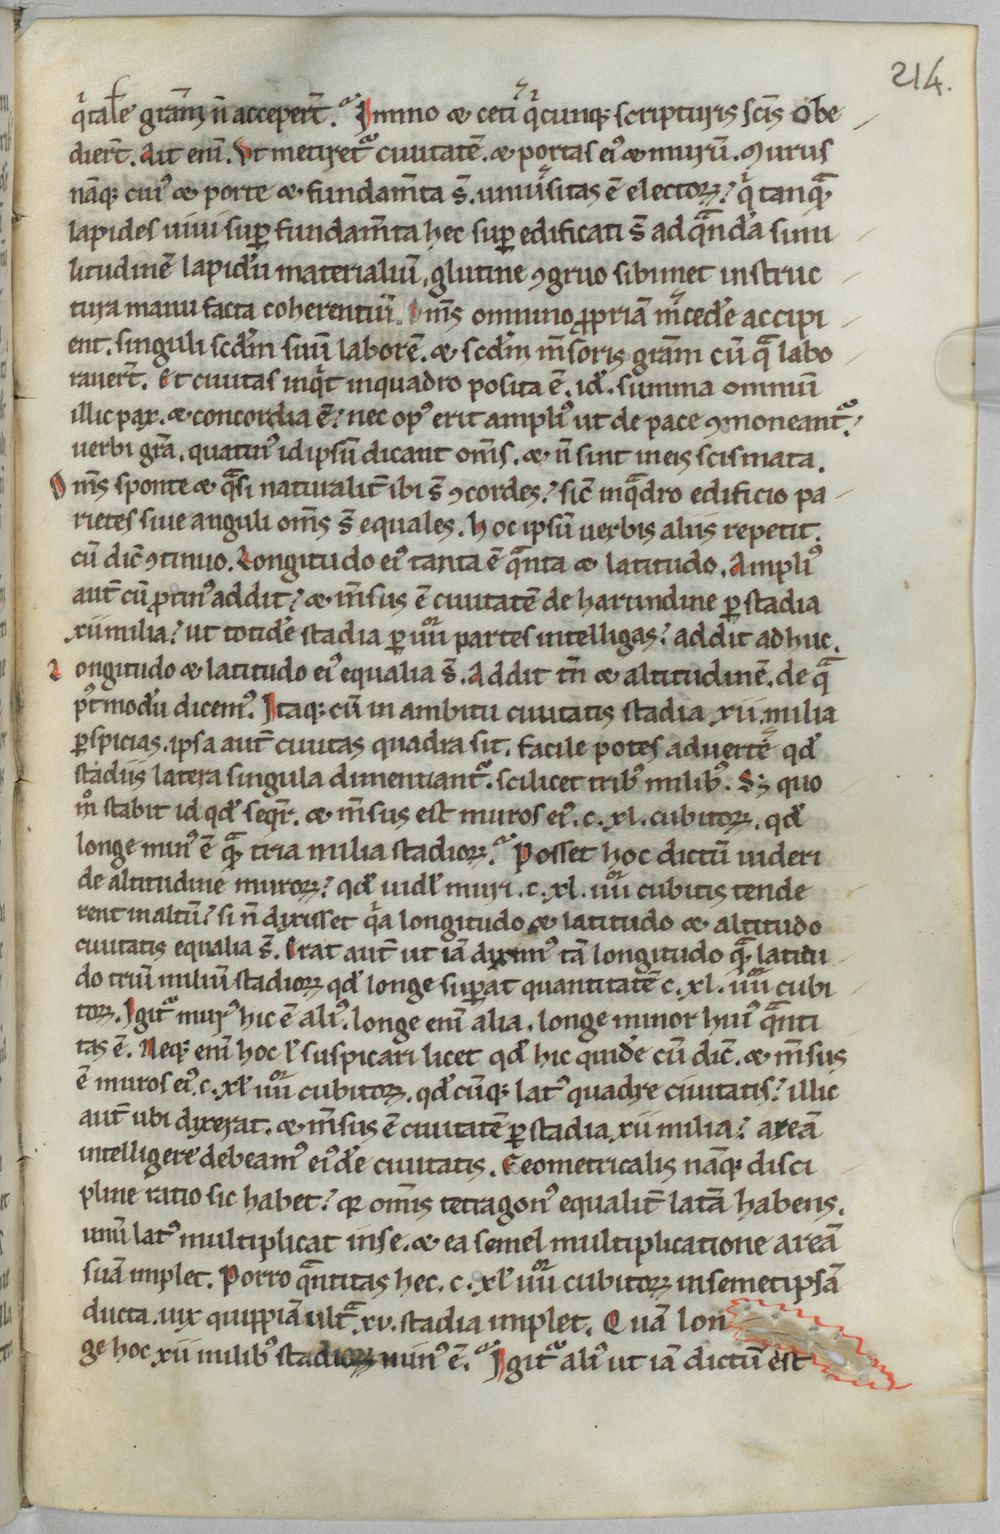 214.
q̇ tale gr̄am n̄ acceper̄t. Immo ⁊ ceti q̇cunq; scripturis sc̄is obe
dier̄t. Ait eni̅. Ut metiret᷑ ciuitatē. ⁊ portas eiꝰ ⁊ muru̅. Murus
nāq; ciuiꝰ ⁊ porte ⁊ fundam̄ta s̄. uniu̓sitas ē electoꝝ? q̇ tanqᷓ
lapides uiui suꝑ fundam̄ta hec suꝑ edificati s̄ ad qᷓndā simi
litudinē lapidu̅ materialiu̅, glutine ꝯgruo sibimet in struc
tura manu facta coherentiu̅. Om̄s omnino ꝓpriā m̓cedē accipi
ent. singuli scdm̄ suu̅ laborē. ⁊ scdm̄ m̄soris gr̄am cu̅ qᷓ labo
rauer̄t. Et ciuitas inq̇t in quadro posita ē. id̄. summa omniu̅
illic pax. ⁊ concordia ē? nec opꝰ erit ampliꝰ ut de pace ꝯmoneant᷑?
uerbi gr̄a. quatinꝰ id ipsu̅ dicant om̄s. ⁊ n̄ sint in eis scismata.
Om̄s sponte ⁊ qᷓsi naturalit̄ ibi s̄ ꝯcordes? sic̄ in qᷓdro edificio pa
rietes siue anguli om̄s s̄ equales. Hoc ipsu̅ uerbis aliis repetit.
cu̅ dic̄ ꝯtinuo. Longitudo eiꝰ tanta ē qᷓnta ⁊ latitudo. Ampliꝰ
aut̄ cu̅ ꝓtinꝰ addit? ⁊ m̄sus ē ciuitatē de harundine ꝑ stadia
xii milia? ut totidē stadia ꝑ iiiiᵒʳ partes intelligas? addit adhuc.
Longitudo ⁊ latitudo eiꝰ equalia s̄. Addit tn̄ ⁊ altitudinē. de qᷓ
pꝰt modu̅ dicemꝰ. Itaq; cu̅ in ambitu ciuitatis stadia xii. milia
ꝑspicias. ipsa aut̄ ciuitas quadra sit. facile potes aduerte̓ qd̄
stadiis latera singula dimentiant᷑. scilicet tribꝰ milibꝰ. Sꝫ quo
m̊ stabit id qd̄ seqr̄. ⁊ m̄sus est muros eiꝰ. c. xl. cubitoꝝ. qd̄
longe minꝰ ē qᷓ tria milia stadioꝝ. Posset hoc dictu̅ uideri
de altitudine muroꝝ? qd̄ uidl̄ muri. c. xl. iiiiᵒʳ cubitis tende
rent in altu̅? si n̄ dixisset q̇a longitudo ⁊ latitudo ⁊ altitudo
ciuitatis equalia s̄. Erat aut̄ ut iā diximꝰ tā longitudo qᷓ latitu
do triu̅ miliu̅ stadioꝝ qd̄ longe suꝑat quantitatē c. xl. iiiiᵒʳ cubi
toꝝ. Igit᷑ murꝰ hic ē aliꝰ. longe eni̅ alia. longe minor huiꝰ qᷓnti
tas ē. Neq; eni̅ hoc l̄ suspicari licet qd̄ hic quidē cu̅ dic̄. ⁊ m̄sus
ē muros eiꝰ. c. xl̄ iiiiᵒʳ cubitoꝝ. qd̄cu̅q; latꝰ quadre ciuitatis? illic
aut̄ ubi dixerat. ⁊ m̄sus ē ciuitatē ꝑ stadia xii milia? areā
intelligere debeamꝰ eiꝰdē ciuitatis. Geometricalis nāq; disci
pline ratio sic habet? qr̄ om̄is tetragonꝰ equalit̄ latā habens.
unu̅ latꝰ multiplicat in se. ⁊ ea semel multiplicatione areā
suā implet. Porro qᷓntitas hec. c. xl̄ iiiiᵒʳ cubitoꝝ in semet ipsā
ducta. uix quippiā ult̄ᷓ. xv. stadia implet. Quā lon
ge hoc xii milibꝰ stadioꝝ minꝰ ē. Igit᷑ aliꝰ ut iā dictu̅ est